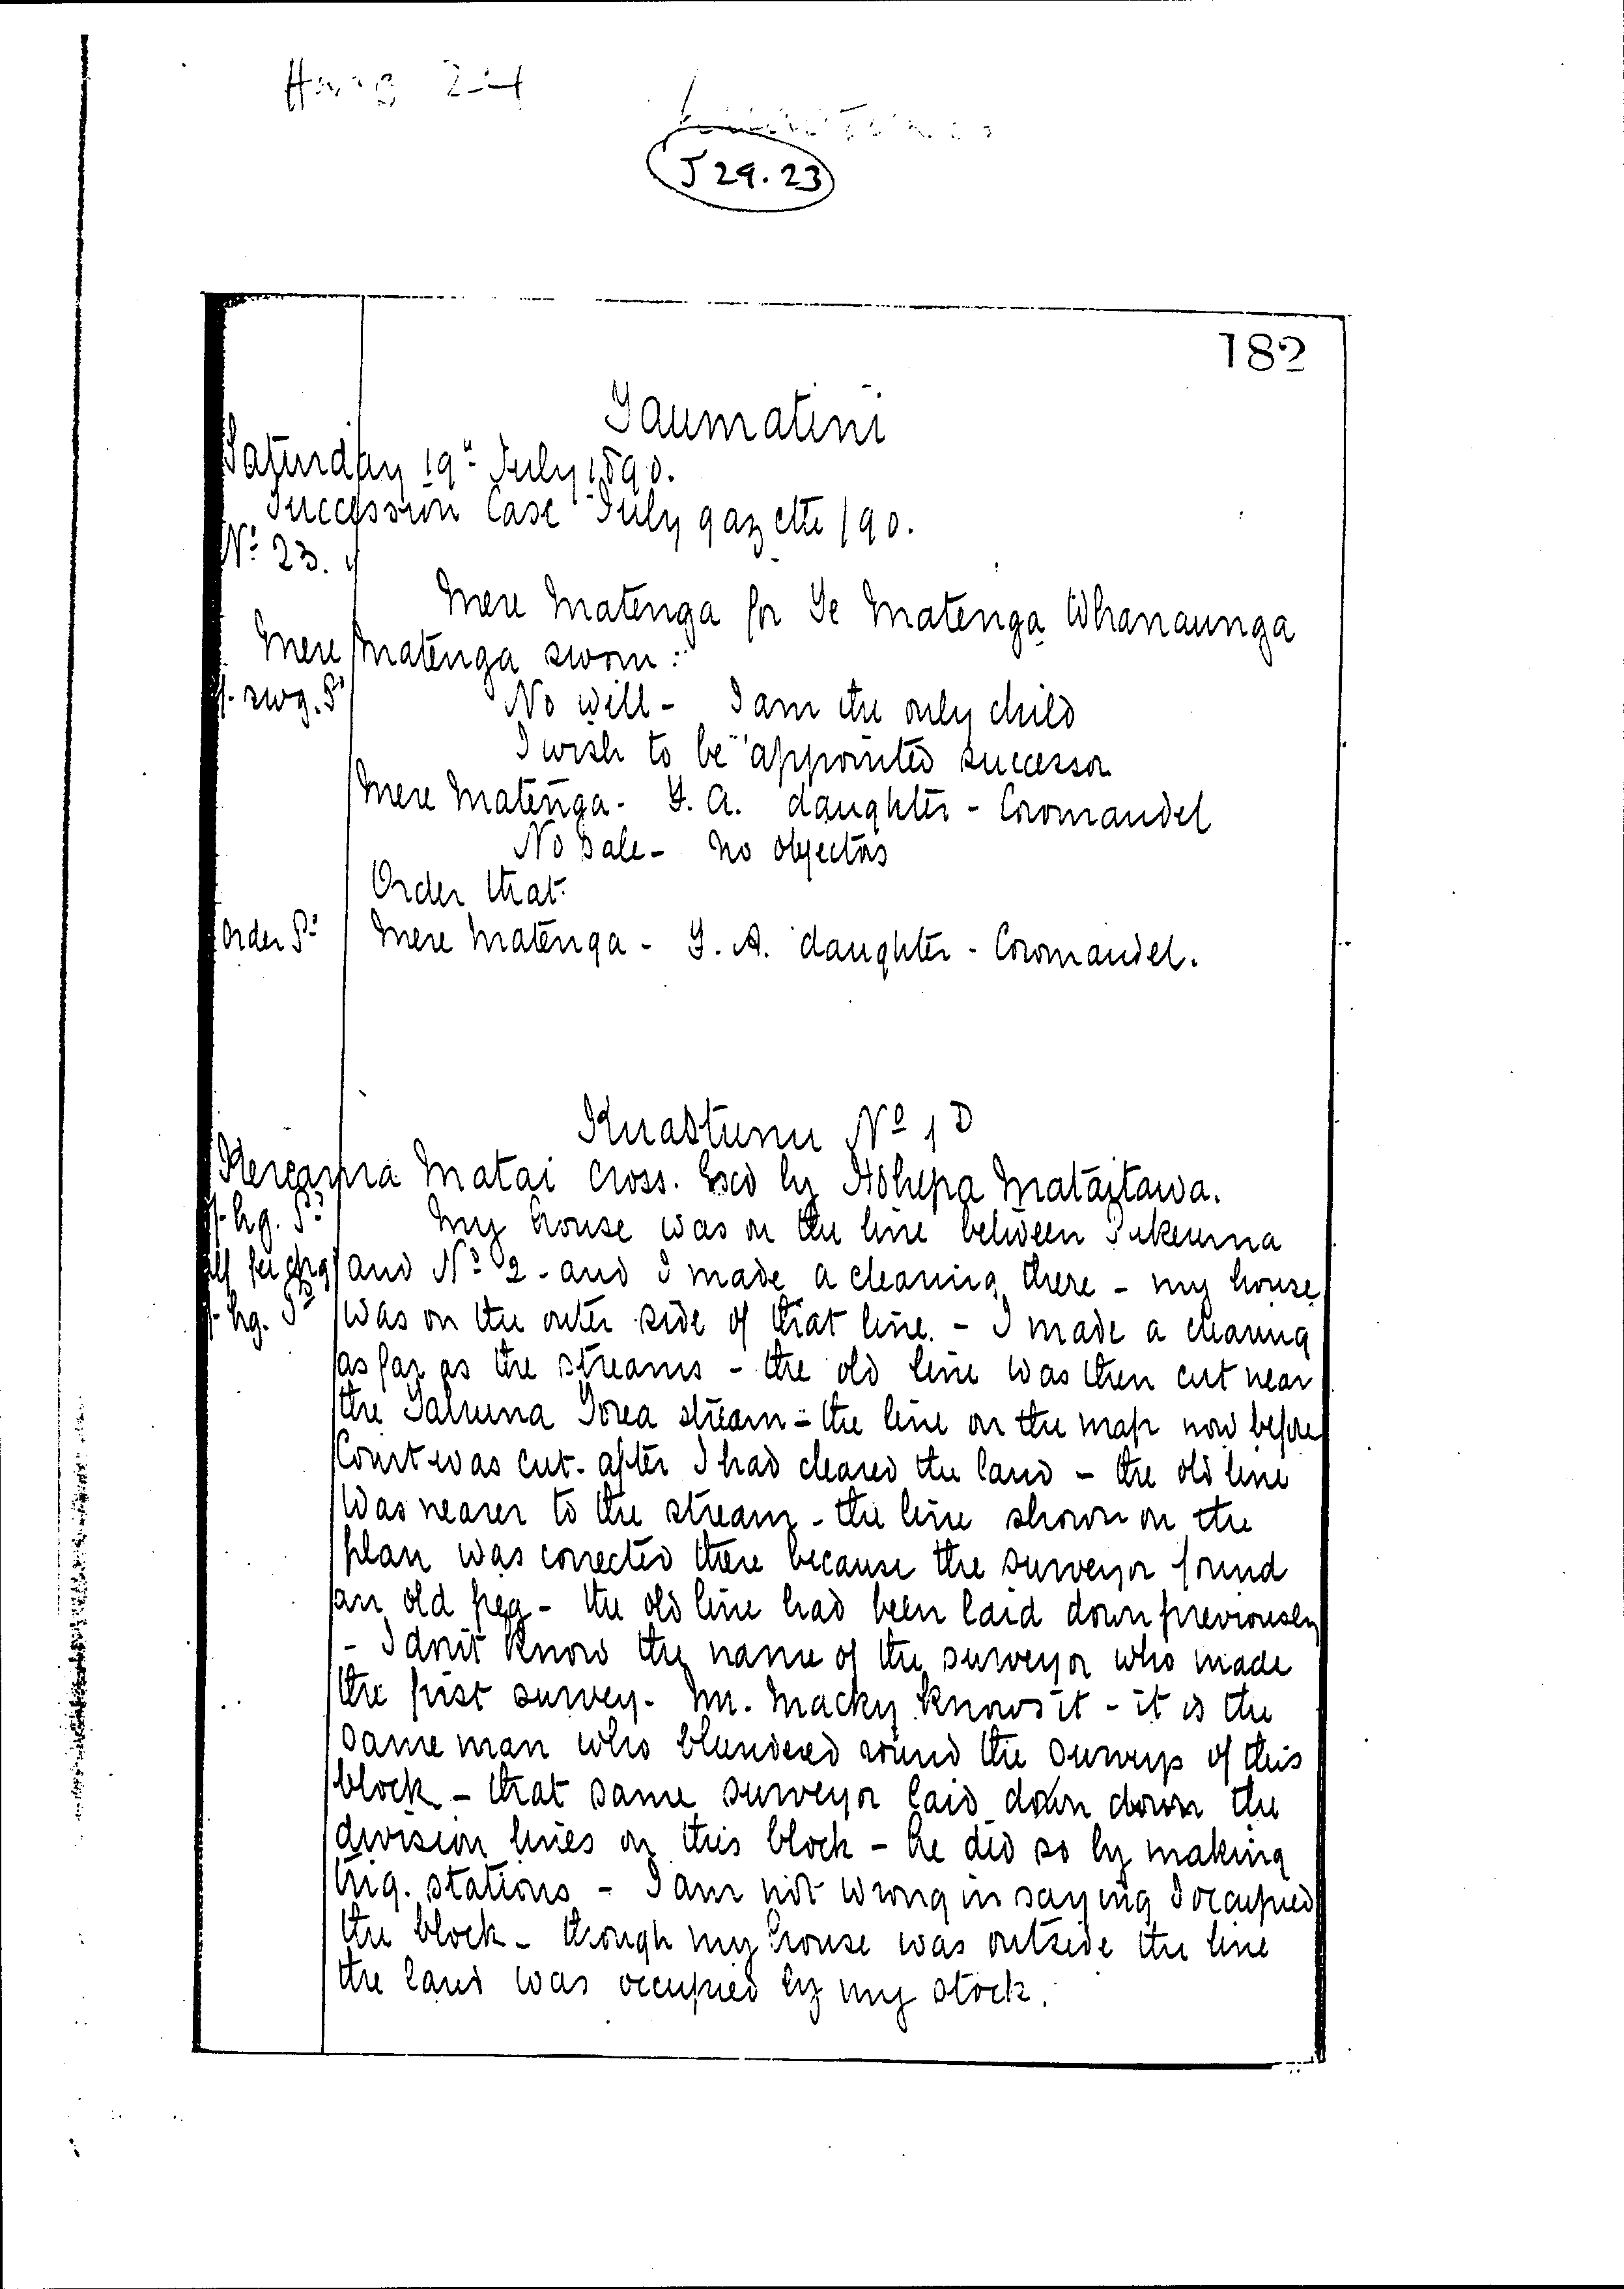 J 29.23
182
Taumatini
Saturday 19th July 1890.
Succession Case July gazette /90.
No 23.
Mere Matenga for Te Matenga Whanaunga
Mere Matenga sworn:
No will - I am the only child
I wish to be appointed successor
Mere Matenga - F. A. daughter - Coromandel
No sale - no objectors
Order that
Order Pd Mere Matenga - F. A. daughter - Coromandel.
Kuaotunu No 1D
Kereama Matai cross. Exed by Hohepa Mataitawa.
My house was on the line between Pukeuma
and No 2 - and I made a clearing there - my house
was on the outer side of that line. - I made a clearing
as far as the streams - the old line was then cut near
the Tahuna Torea stream - the line on the map now before
Court was cut after I had cleared the land - the old line
was nearer to the stream - the line shown on the
plan was corrected there because the surveyor found
an old peg - the old line had been laid down previously
- I don't know the name of the surveyor who made
the first survey. Mr. Macky knows it - it is the
same man who blundered round the surveys of this
block - that same surveyor laid down down the
division lines on this block - he did so by making
trig. stations - I am not wrong in saying I occupied
the block - though my house was outside the line
the land was occupied by my stock.